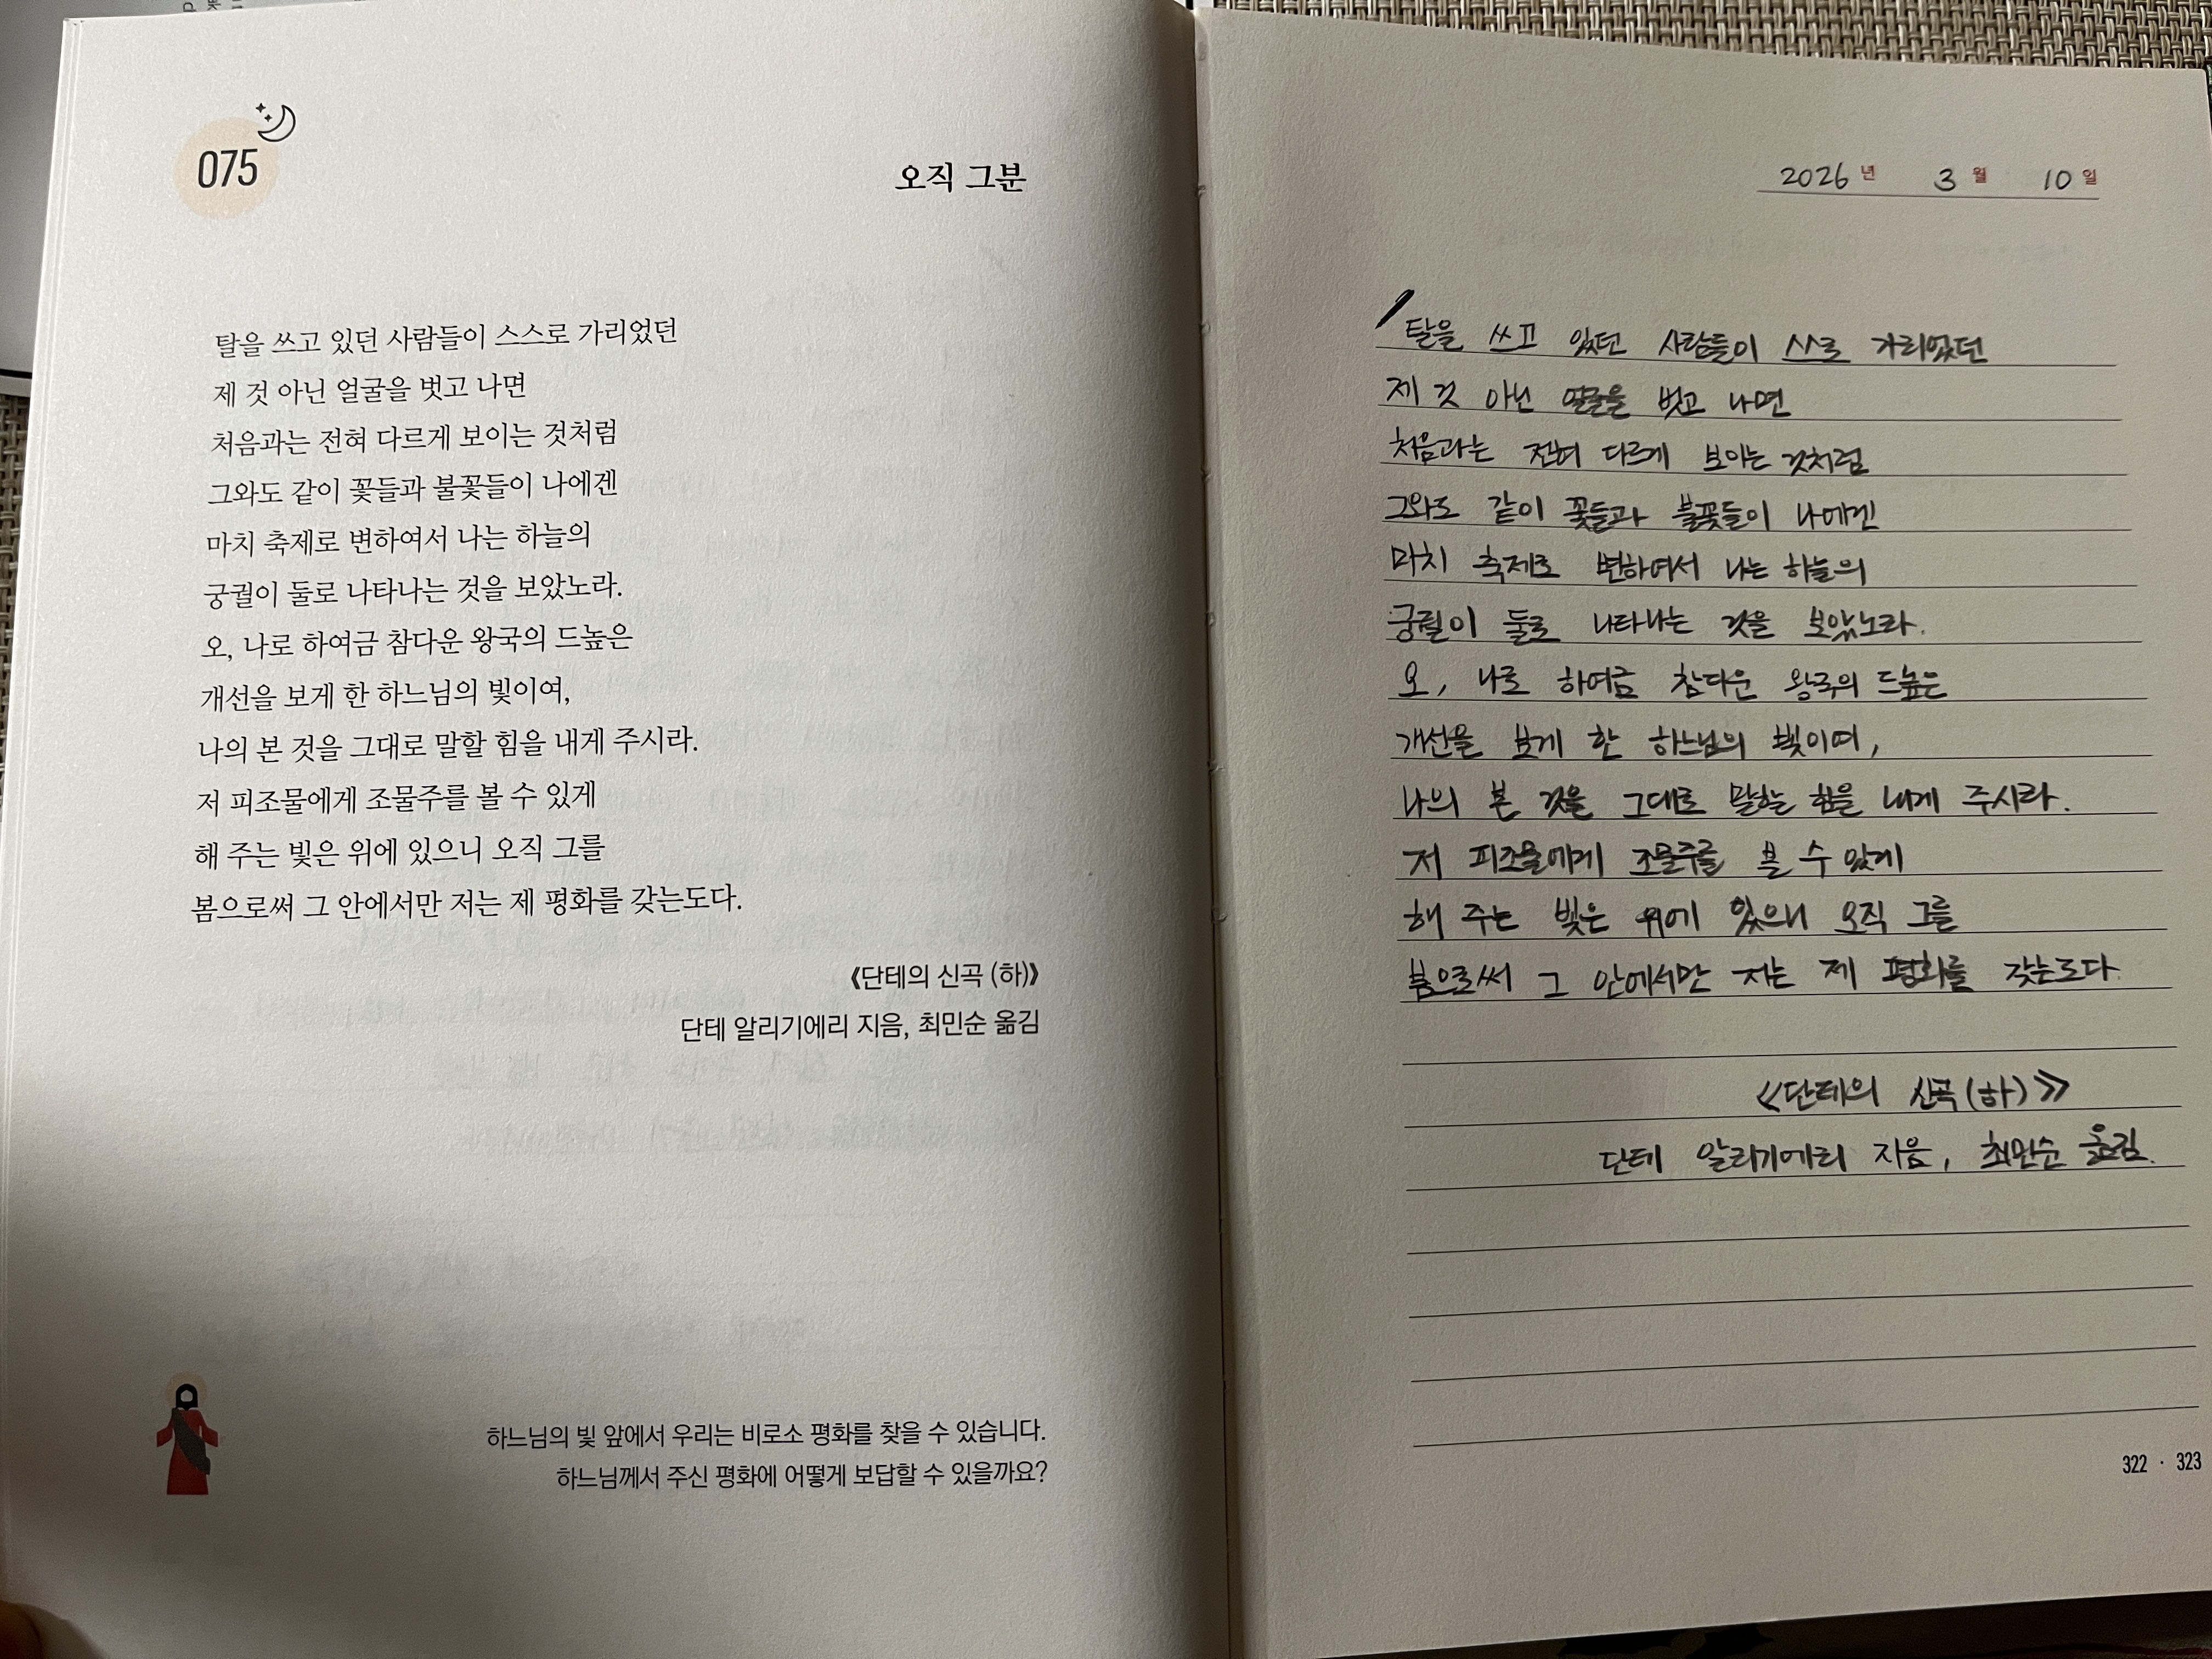 075
오직 그분
탈을 쓰고 있던 사람들이 스스로 가리었던
제 것 아닌 얼굴을 벗고 나면
처음과는 전혀 다르게 보이는 것처럼
그와도 같이 꽃들과 불꽃들이 나에겐
마치 축제로 변하여서 나는 하늘의
궁궐이 둘로 나타나는 것을 보았노라.
오, 나로 하여금 참다운 왕국의 드높은
개선을 보게 한 하느님의 빛이여,
나의 본 것을 그대로 말할 힘을 내게 주시라.
저 피조물에게 조물주를 볼 수 있게
해 주는 빛은 위에 있으니 오직 그를
봄으로써 그 안에서만 저는 제 평화를 갖는도다.
《단테의 신곡 (하)》
단테 알리기에리 지음, 최민순 옮김
하느님의 빛 앞에서 우리는 비로소 평화를 찾을 수 있습니다.
하느님께서 주신 평화에 어떻게 보답할 수 있을까요?
2026 년 3 월 10 일
탈을 쓰고 있던 사람들이 스스로 가리었던
제 것 아닌 얼굴을 벗고 나면
처음과는 전혀 다르게 보이는 것처럼
그와도 같이 꽃들과 불꽃들이 나에겐
마치 축제로 변하여서 나는 하늘의
궁궐이 둘로 나타나는 것을 보았노라.
오, 나로 하여금 참다운 왕국의 드높은
개선을 보게 한 하느님의 빛이여,
나의 본 것을 그대로 말할 힘을 내게 주시라.
저 피조물에게 조물주를 볼 수 있게
해 주는 빛은 위에 있으니 오직 그를
봄으로써 그 안에서만 저는 제 평화를 갖는도다.
《단테의 신곡(하)》
단테 알리기에리 지음, 최민순 옮김.
322 · 323